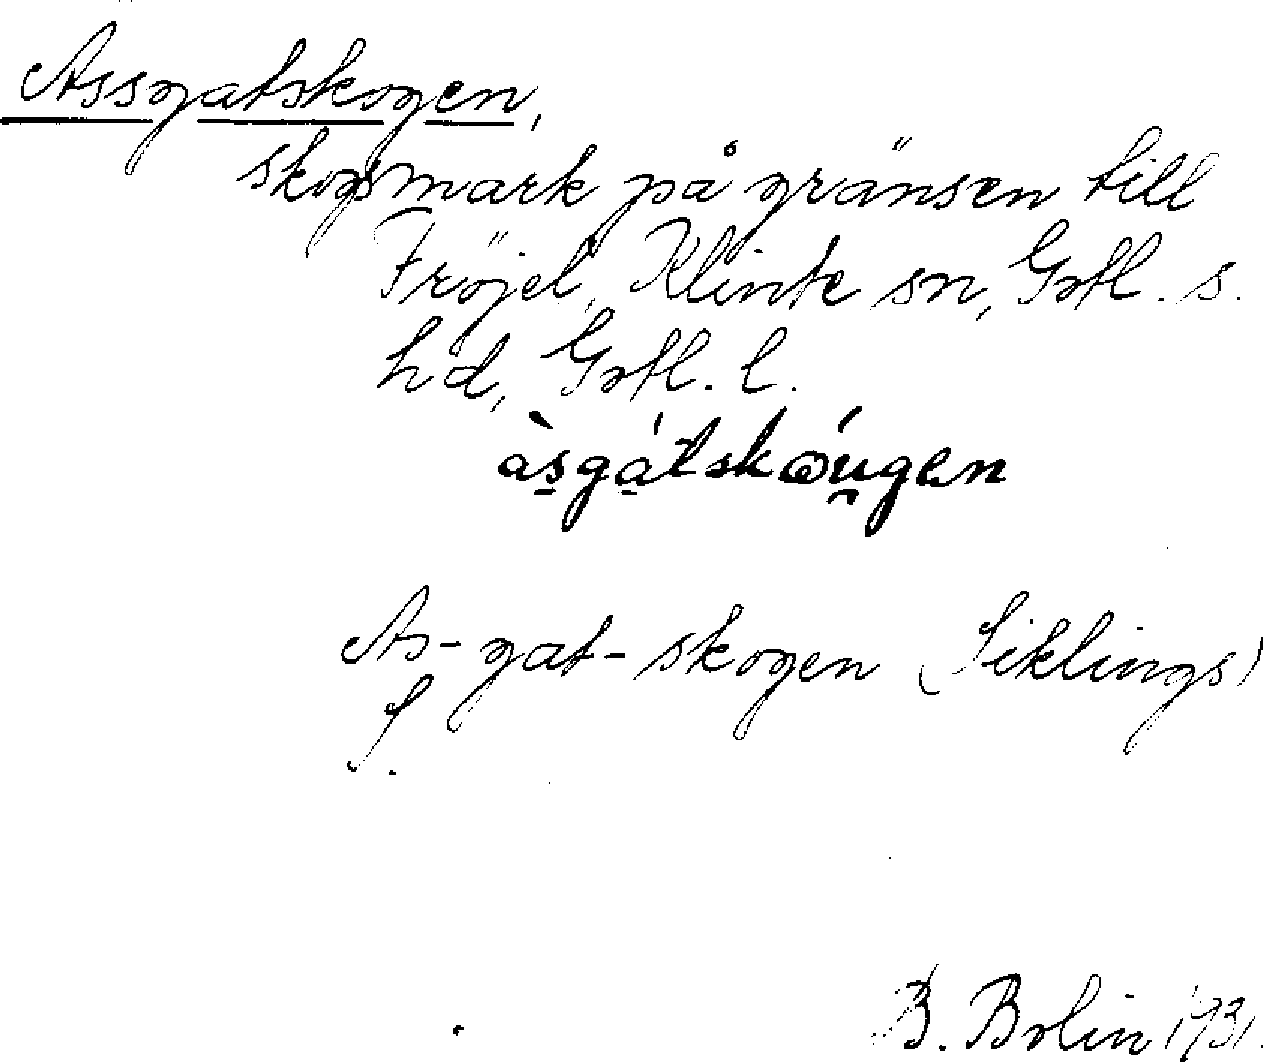 Assgatskogen,
skogsmark på gränsen till
Fröjel, Klinte sn, Gotl. s.
hd, Gotl. l.
às̠gá̠tskǫu̯gen
As-gat-skogen (Siklings)
f.
B. Bolin 1931.